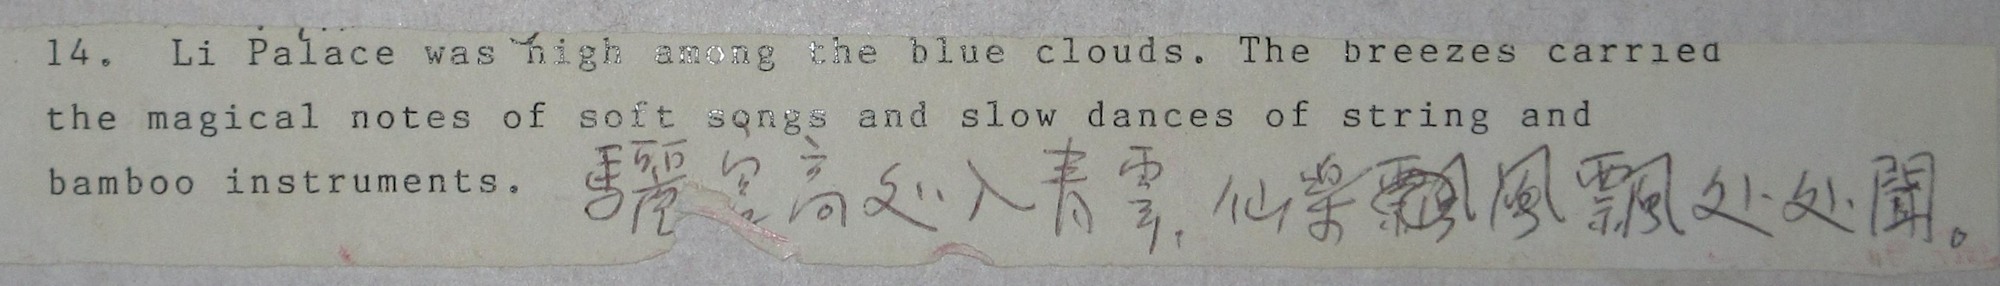 14. Li Palace was high among the blue clouds. The breezes carried
the magical notes of soft songs and slow dances of string and
bamboo instruments. 驪宮高处入青雲, 仙樂風飄处处聞。